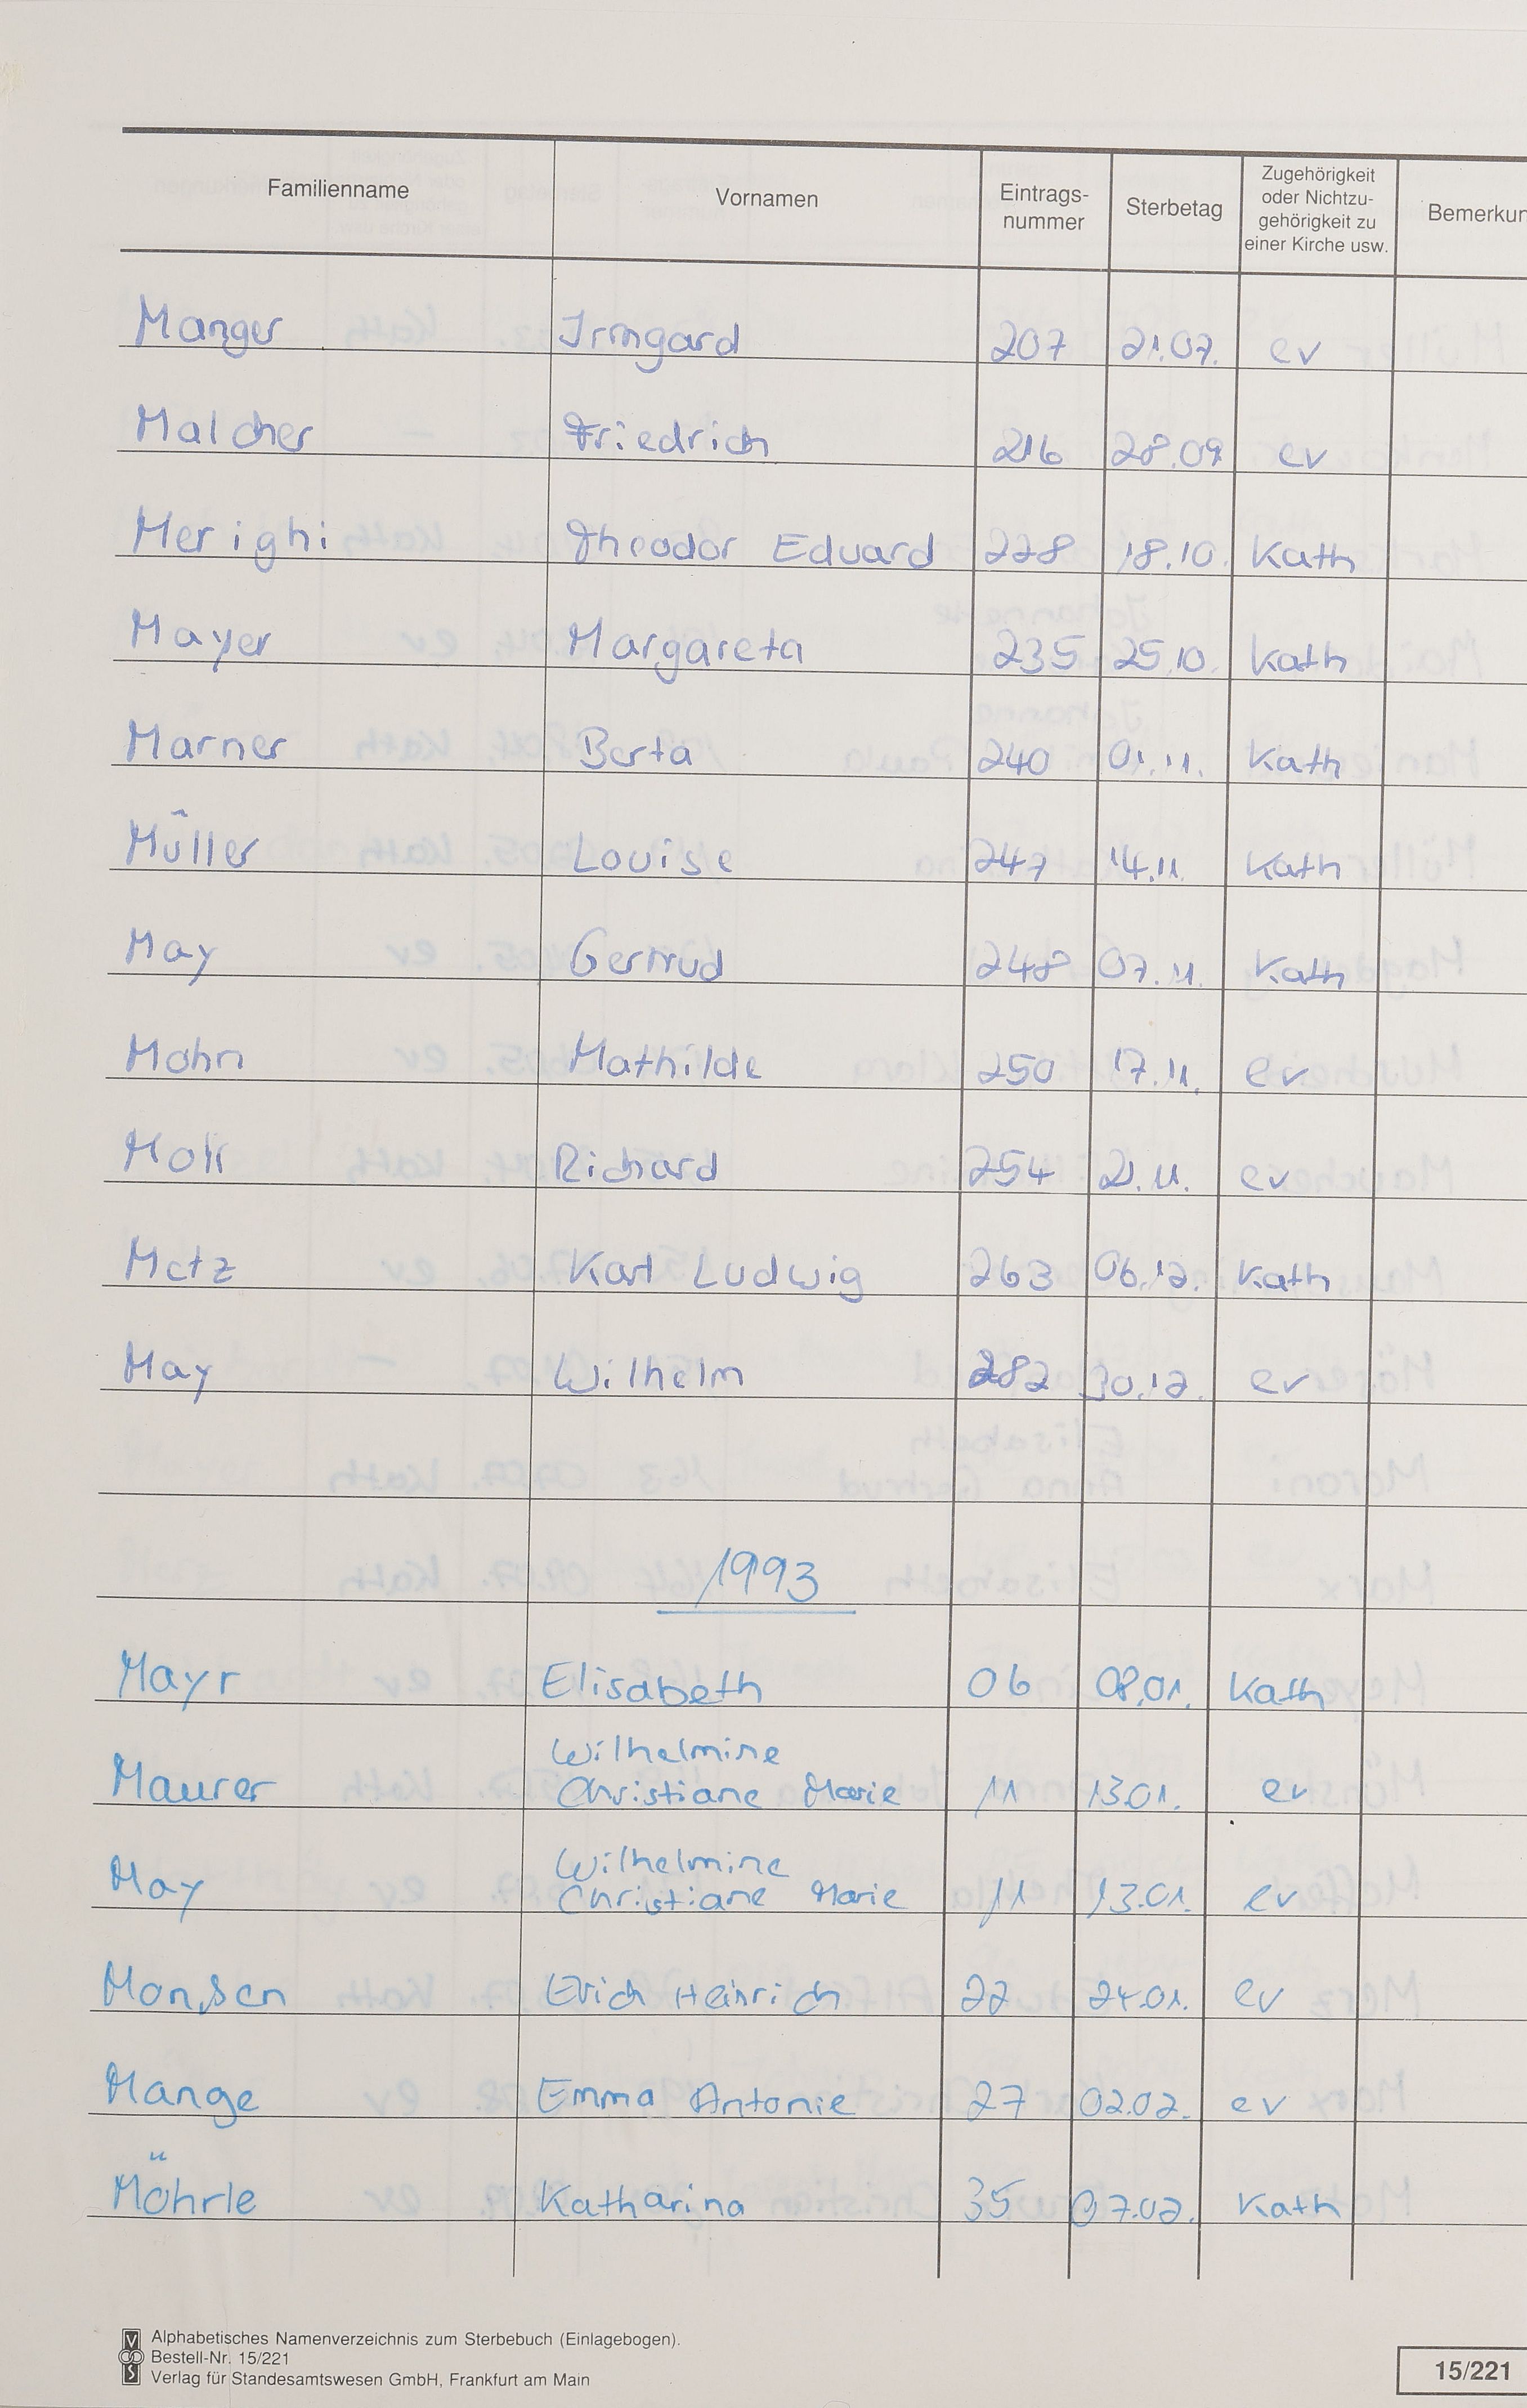 Familienname Vornamen Eintrags-nummer Sterbetag Zugehörigkeit oder Nichtzu-gehörigkeit zu einer Kirche usw. Bemerkun
Manger Irmgard 207 21.07. ev
Malcher Friedrich 216 28.09 ev
Merighi Theodor Eduard 228 18.10. Kath
Mayer Margareta 235 25.10. Kath
Marner Berta 240 01.11. Kath
Müller Louise 247 14.11. Kath
May Gertrud 248 07.11. Kath
Mohn Mathilde 250 17.11. ev
Richard 254 21.11. ev
Metz Karl Ludwig 263 06.12. Kath
May Wilhelm 282 30.12. ev
1993
Mayr Elisabeth 06 08.01. Kath
Wilhelmine
Maurer Christiane Marie 11 13.01. ev
Wilhelmine
May Christiane Marie 11 13.01. ev
Monsen Erich Heinrich 22 24.01. ev
Mange Emma Antonie 27 02.02. ev
Möhrle Katharina 35 07.02. Kath
Alphabetisches Namenverzeichnis zum Sterbebuch (Einlagebogen).
Bestell-Nr. 15/221
Verlag für Standesamtswesen GmbH, Frankfurt am Main
15/221